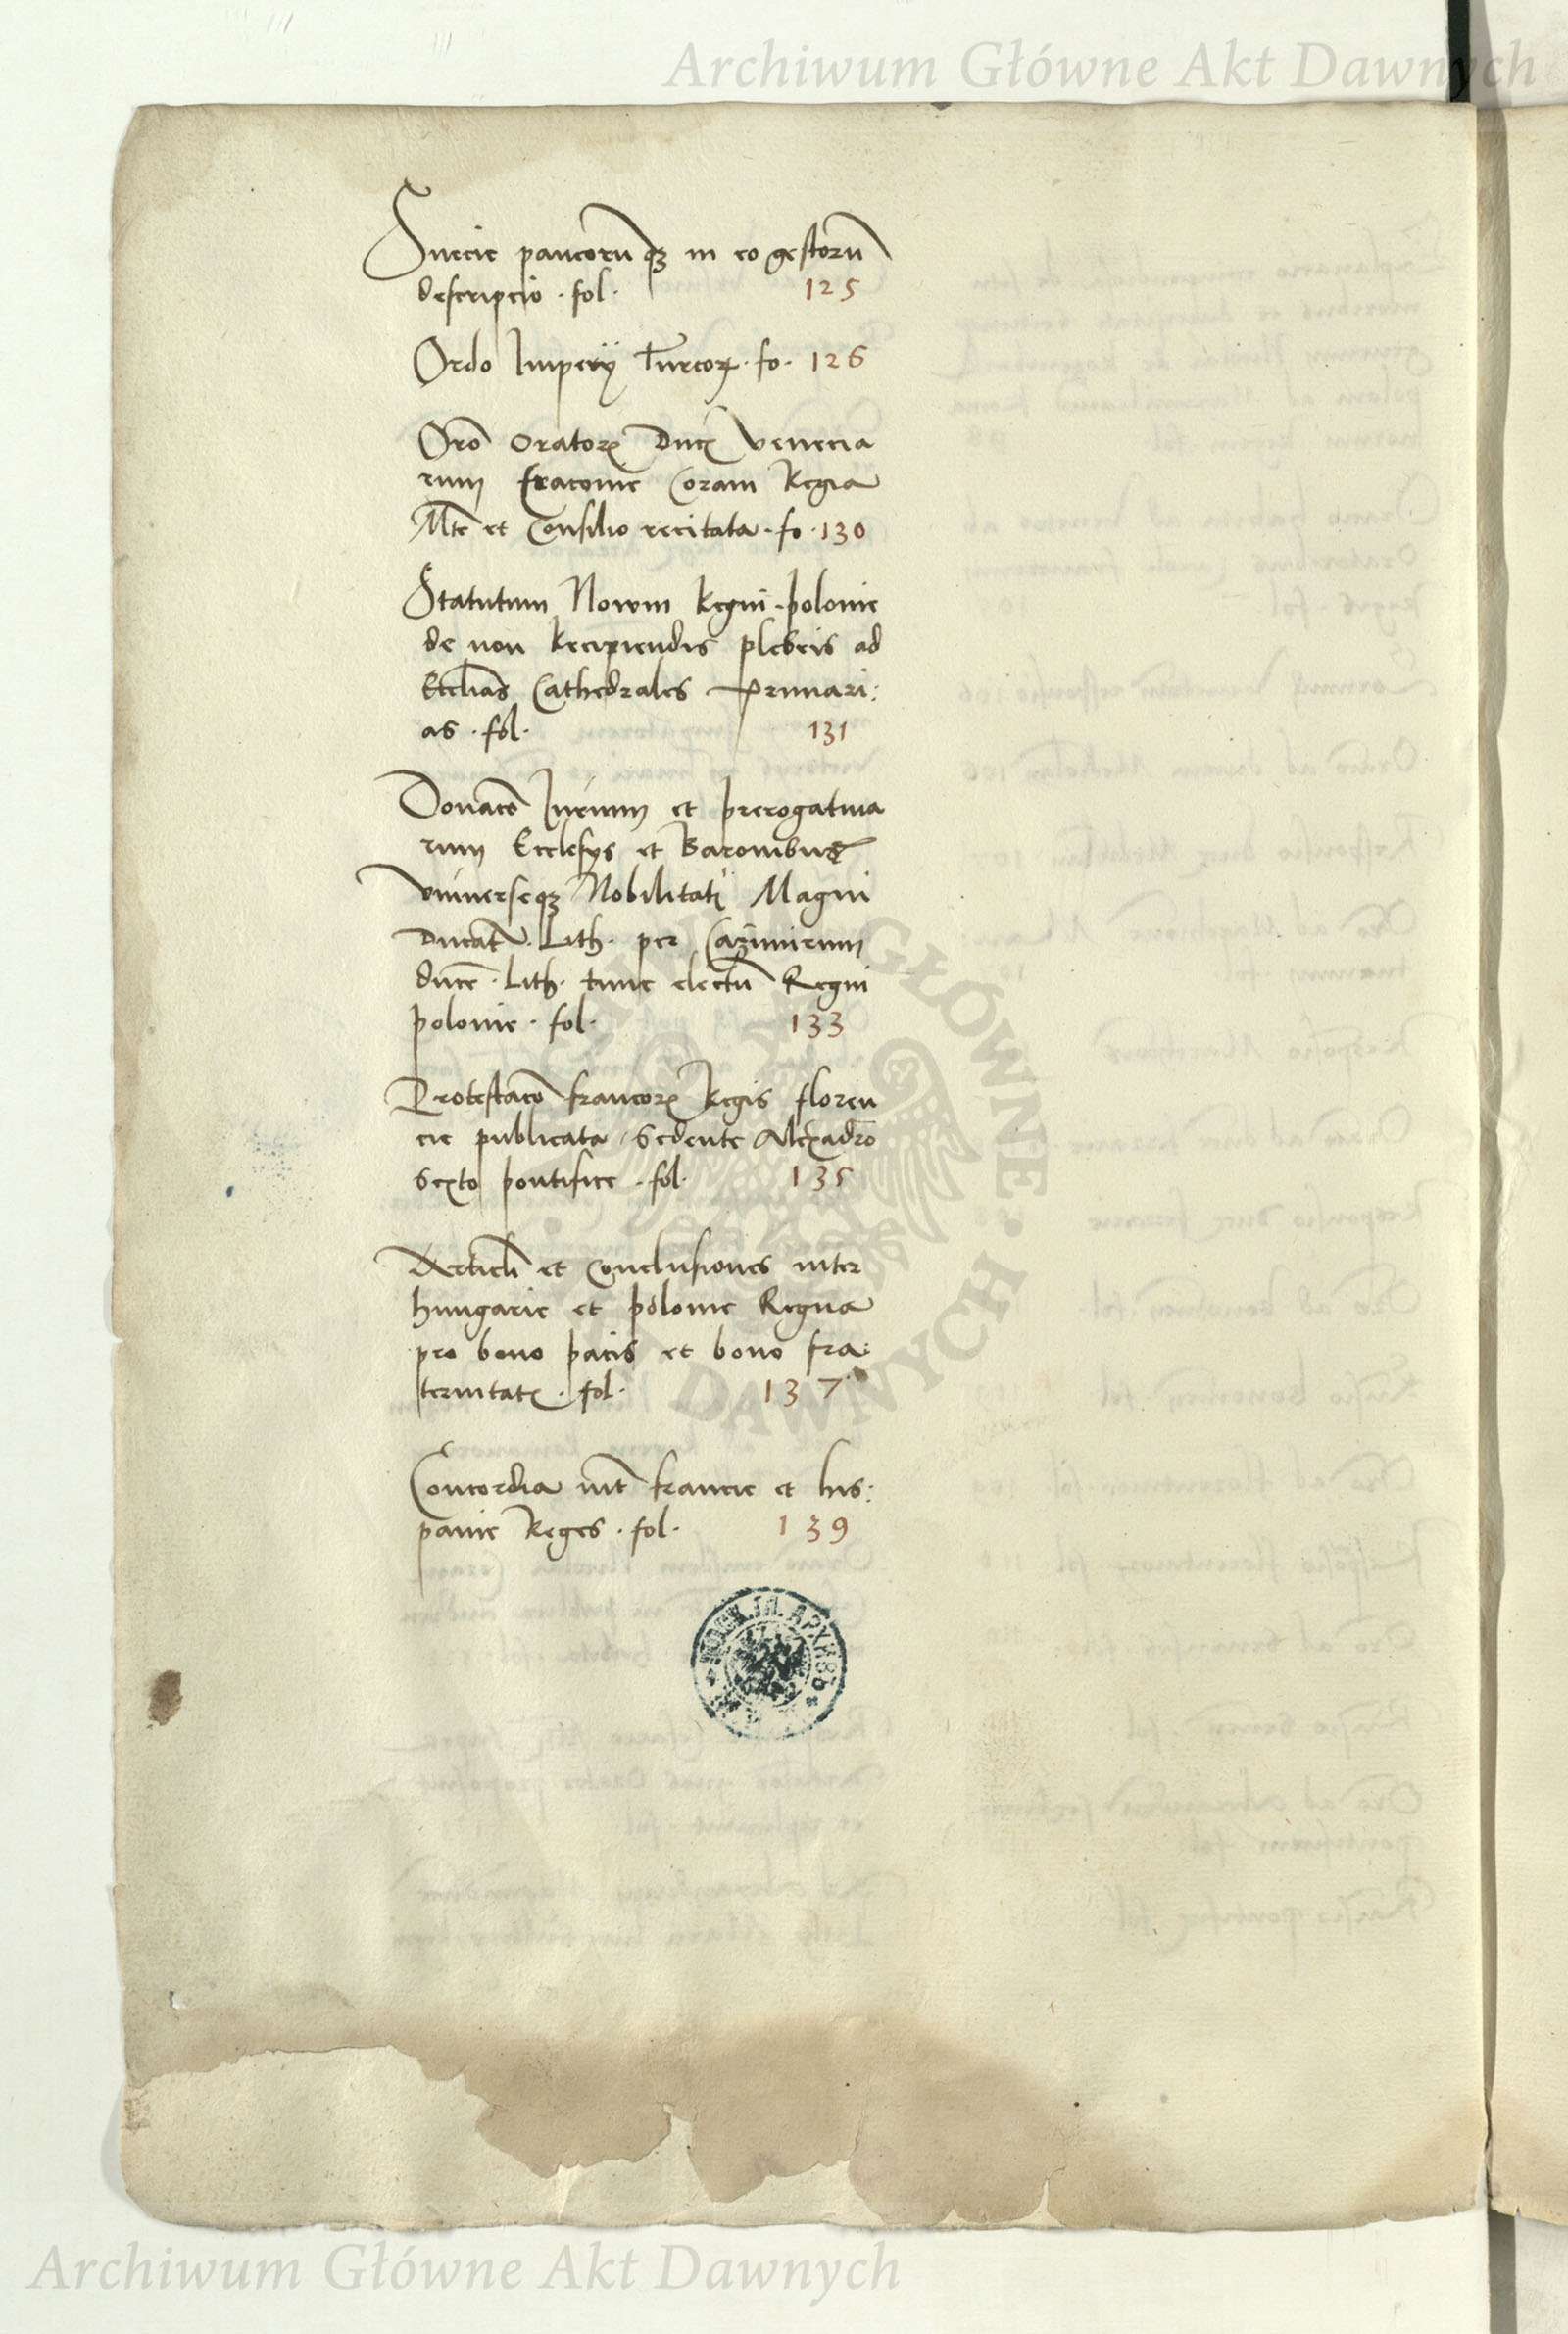 Archiwum Główne Akt Dawnych
Suecie paucorũqꝫ in eo gestorũ
descripcio · fol · 125
Ordo Imperÿ Turcoꝝ · fo · 126
Orõ Oratorꝭ Ducꝭ Venecia
rum Cracouie Coram Regia
Mte et Consilio recitata · fo · 130
Statutum Nowm Regni polonie
de non Recipiendis plebeis ad
Ecclias Cathedrales Primari:
as · fol · 131
Donacõ Iurium et prerogatiua
rum Ecclesÿs et Baronibus
vniuerseqꝫ Nobilitatꝭ Magni
Ducatꝰ · Lith · per Cazimirum
ducẽ · Lith · tunc electũ Regni
polonie · fol · 133
Protestacõ francorꝭ Regis floren
cie publicata Sedente Alexãdro
Sexto pontifice · fol · 135
Articli et Conclusiones inter
hungarie et polonie Regna
pro bono pacis et bono fra:
ternitatꝭ · fol · 137
Concordia int̃ francie et his:
panie Reges · fol · 139
GŁÓWNE · DAWNYCH ·
АРХИВЪ
Archiwum Główne Akt Dawnych